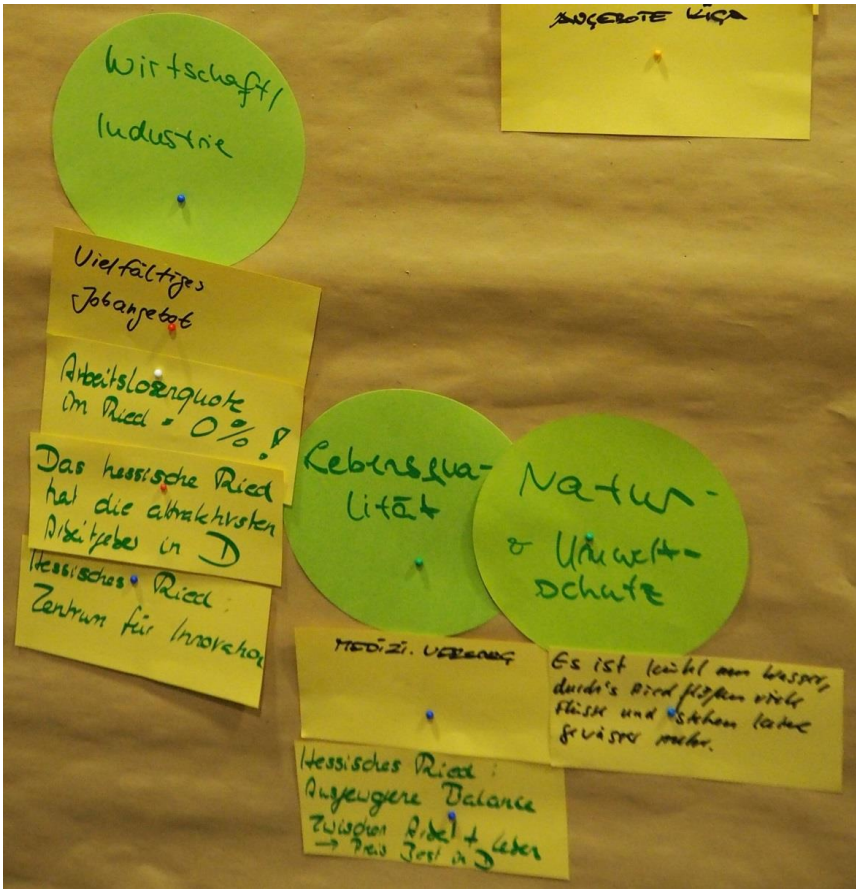 ANGEBOTE KIGA
Wirtschaft/
Industrie
Vielfältiges
Jobangebot
Arbeitslosenquote
im Ried = 0%!
Das hessische Ried
hat die attraktivsten
Arbeitgeber in D
Hessisches Ried:
Zentrum für Innovation
Lebensqua-
lität
MEDIZI. VERSORG
Hessisches Ried:
Ausgewogene Balance
zwischen Arbeit + Leben
→ Preis Best in D
Natur-
& Umwelt-
schutz
Es ist kühl am Wasser,
durch's Ried fließen viele
Flüsse und stehen keine
Gewässer mehr.